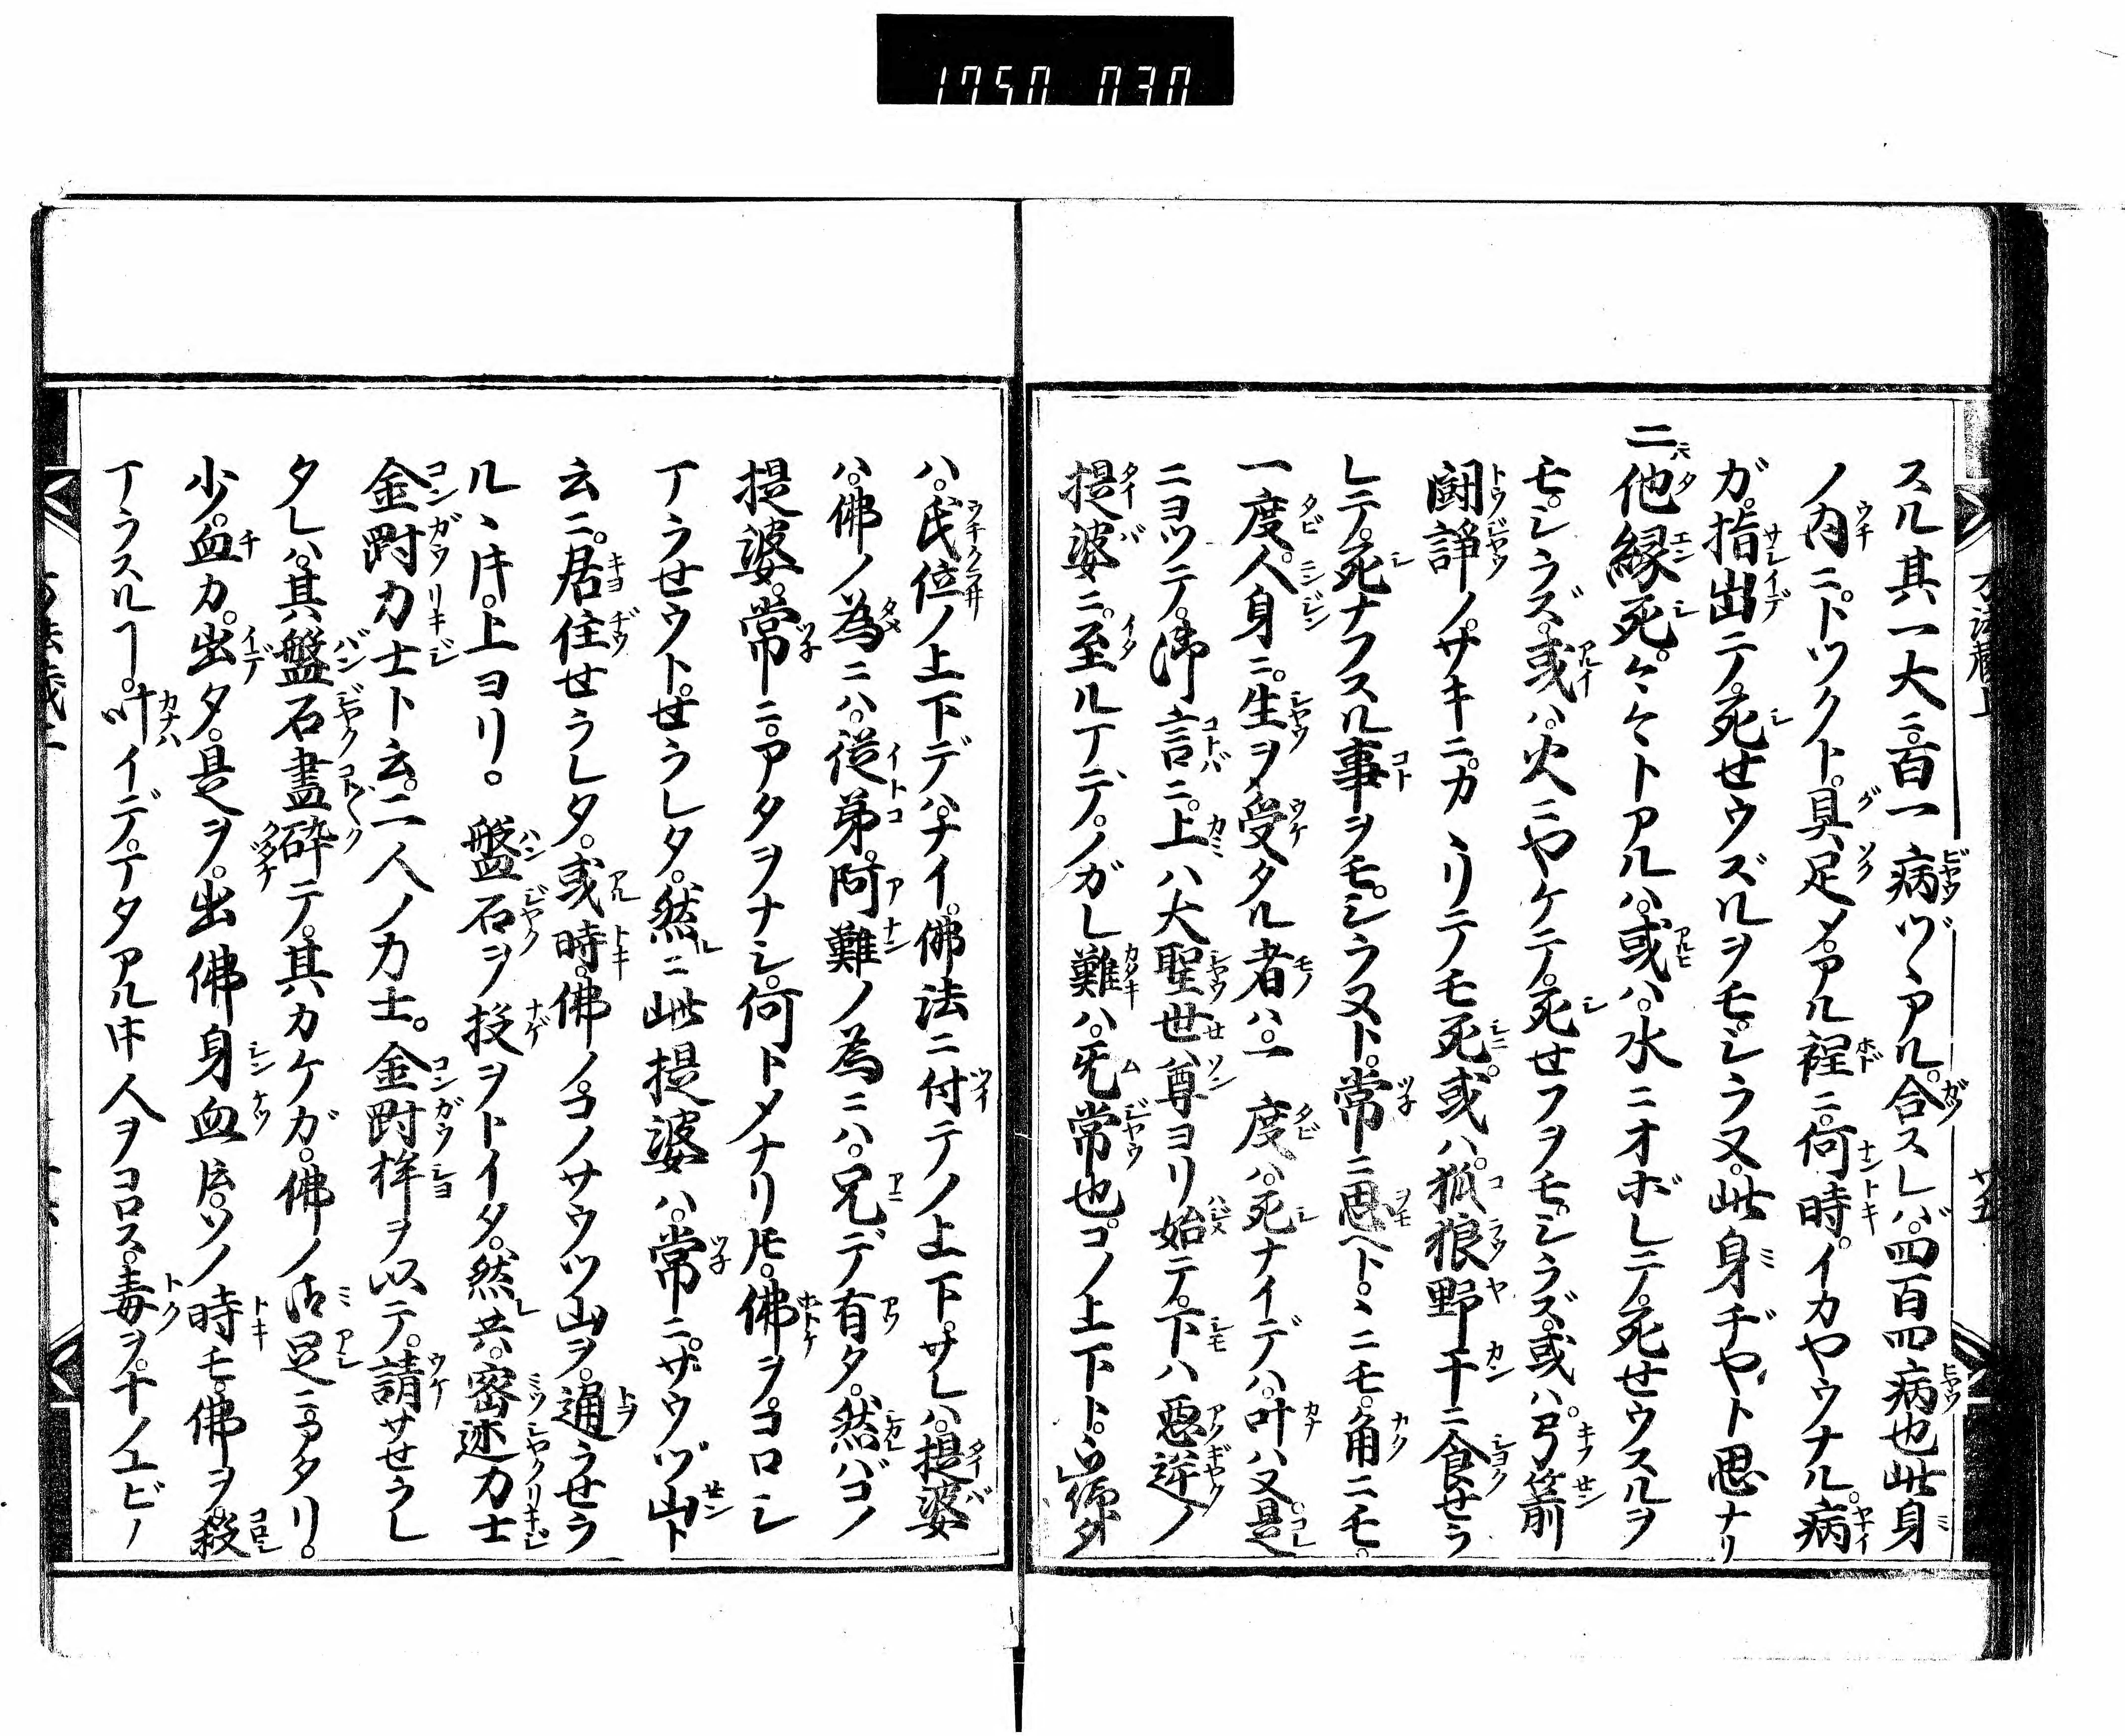 1750 030
スル其一大ニ百一病ヅヽアル。合スレバ。四百四病也此身
ノ内ニ。トツクト。具足メ。アル程ニ。何時。イカヤウナル。病
ガ。指出テ。死せウズルヲモ。シラヌ。此身ヂヤト思ナリ
二他縁死。々々トアルハ。或ハ。水ニオボレテ。死せウスルヲ
モ。シラズ。或ハ。火ニやケテ。死せフヲモ。シラズ。或ハ。弓箭
闘諍ノ。サキニ。カヽリテモ死。或ハ。狐狼野干ニ食せラ
レテ。死ナフスル事ヲモ。シラヌト。常ニ思ヘト。ヽニモ。角ニモ。
一度。人身ニ。生ヲメ受タル者ハ。一度ハ。死ナイデハ。叶ハヌ。是
ニヨツテ。御言ニ。上ハ大聖世尊ヨリ始テ。下ハ悪逆ノ
提婆ニ。至ル丁デ。ノガレ難ハ。旡常也。コノ上下ト。
ハ。氏位ノ上下デハ。ナイ。佛法ニ付テノ上下。サレハ。提婆
ハ。佛ノ為ニハ。従弟。阿難ノ為ニハ。兄デ有タ。然バコノ
提婆。常ニ。アタヲナシ。何トメナリ𪜈。佛ヲ。コロシ
丁ラせウト。せラレタ。然ニ此提婆ハ。常ニ。ザウヅ山ト
云ニ。居住せラレタ。或時。佛ノ。コノサウツ山ヲ。通ラせラ
ルヽ𪜈。上ヨリ。盤石ヲ投ヲトイタ。然共。密迹力士
金剛力士ト云。二人ノ力士。金剛杵ヲ以テ。請サせラレ
タレハ。其盤石盡砕テ。其カケガ。佛ノ御足ニ當タリ。
少。血カ。出タ。是ヲ。出佛身血𪜈。ソノ時モ。佛ヲ殺
丁ラスルヿ。叶イデ。丁タアル𪜈人ヲコロス。毒ヲ。十ノユビノ